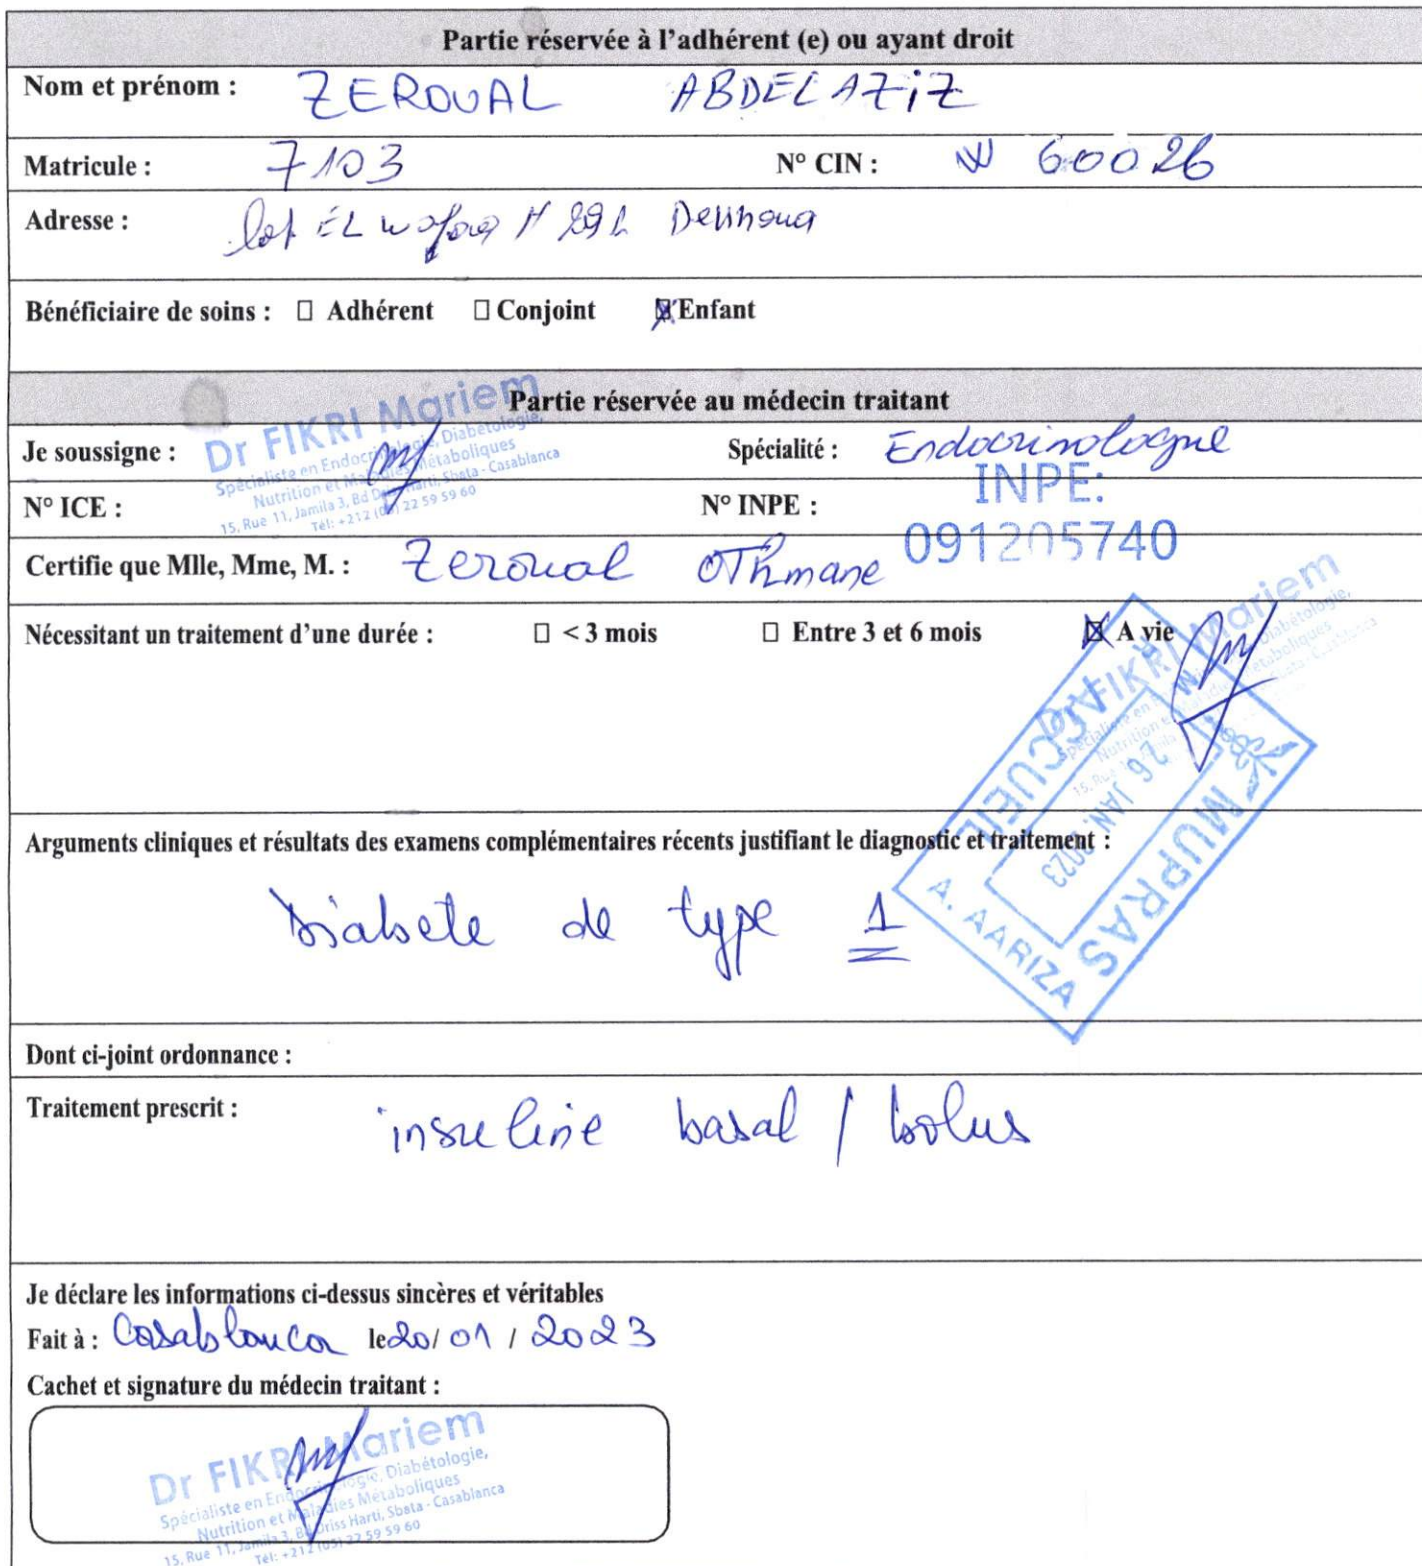 Partie réservée à l'adhérent (e) ou ayant droit
Nom et prénom : ZEROUAL ABDELAZIZ
Matricule : 7103 N° CIN : W 60026
Adresse : lot EL wafaa N
Bénéficiaire de soins : ☐ Adhérent ☐ Conjoint ☒ Enfant
Partie réservée au médecin traitant
Dr FIKRI Mariem
Spécialiste en Endocrinologie, Diabétologie,
Nutrition et Maladies Métaboliques
15, Rue 11, Jamila 3, Bd Driss Harti, Sbata - Casablanca
Tél: +212 (05) 22 59 59 60
Je soussigne : Spécialité : Endocrinologue
N° ICE : N° INPE : INPE:
091205740
Certifie que Mlle, Mme, M. : Zeroual OThmane
Nécessitant un traitement d'une durée : ☐ < 3 mois ☐ Entre 3 et 6 mois ☒ A vie
Dr FIKRI Mariem
ACCUEIL
26 JAN. 2023
MUPRAS
A. AARIZA
Arguments cliniques et résultats des examens complémentaires récents justifiant le diagnostic et traitement :
Diabete de type 1
Dont ci-joint ordonnance :
Traitement prescrit : insuline basal / bolus
Je déclare les informations ci-dessus sincères et véritables
Fait à : Casablanca le 20/01/2023
Cachet et signature du médecin traitant :
Dr FIKRI Mariem
Spécialiste en Endocrinologie, Diabétologie,
Nutrition et Maladies Métaboliques
15, Rue 11, Jamila 3, Bd Driss Harti, Sbata - Casablanca
Tél: +212 (05) 22 59 59 60